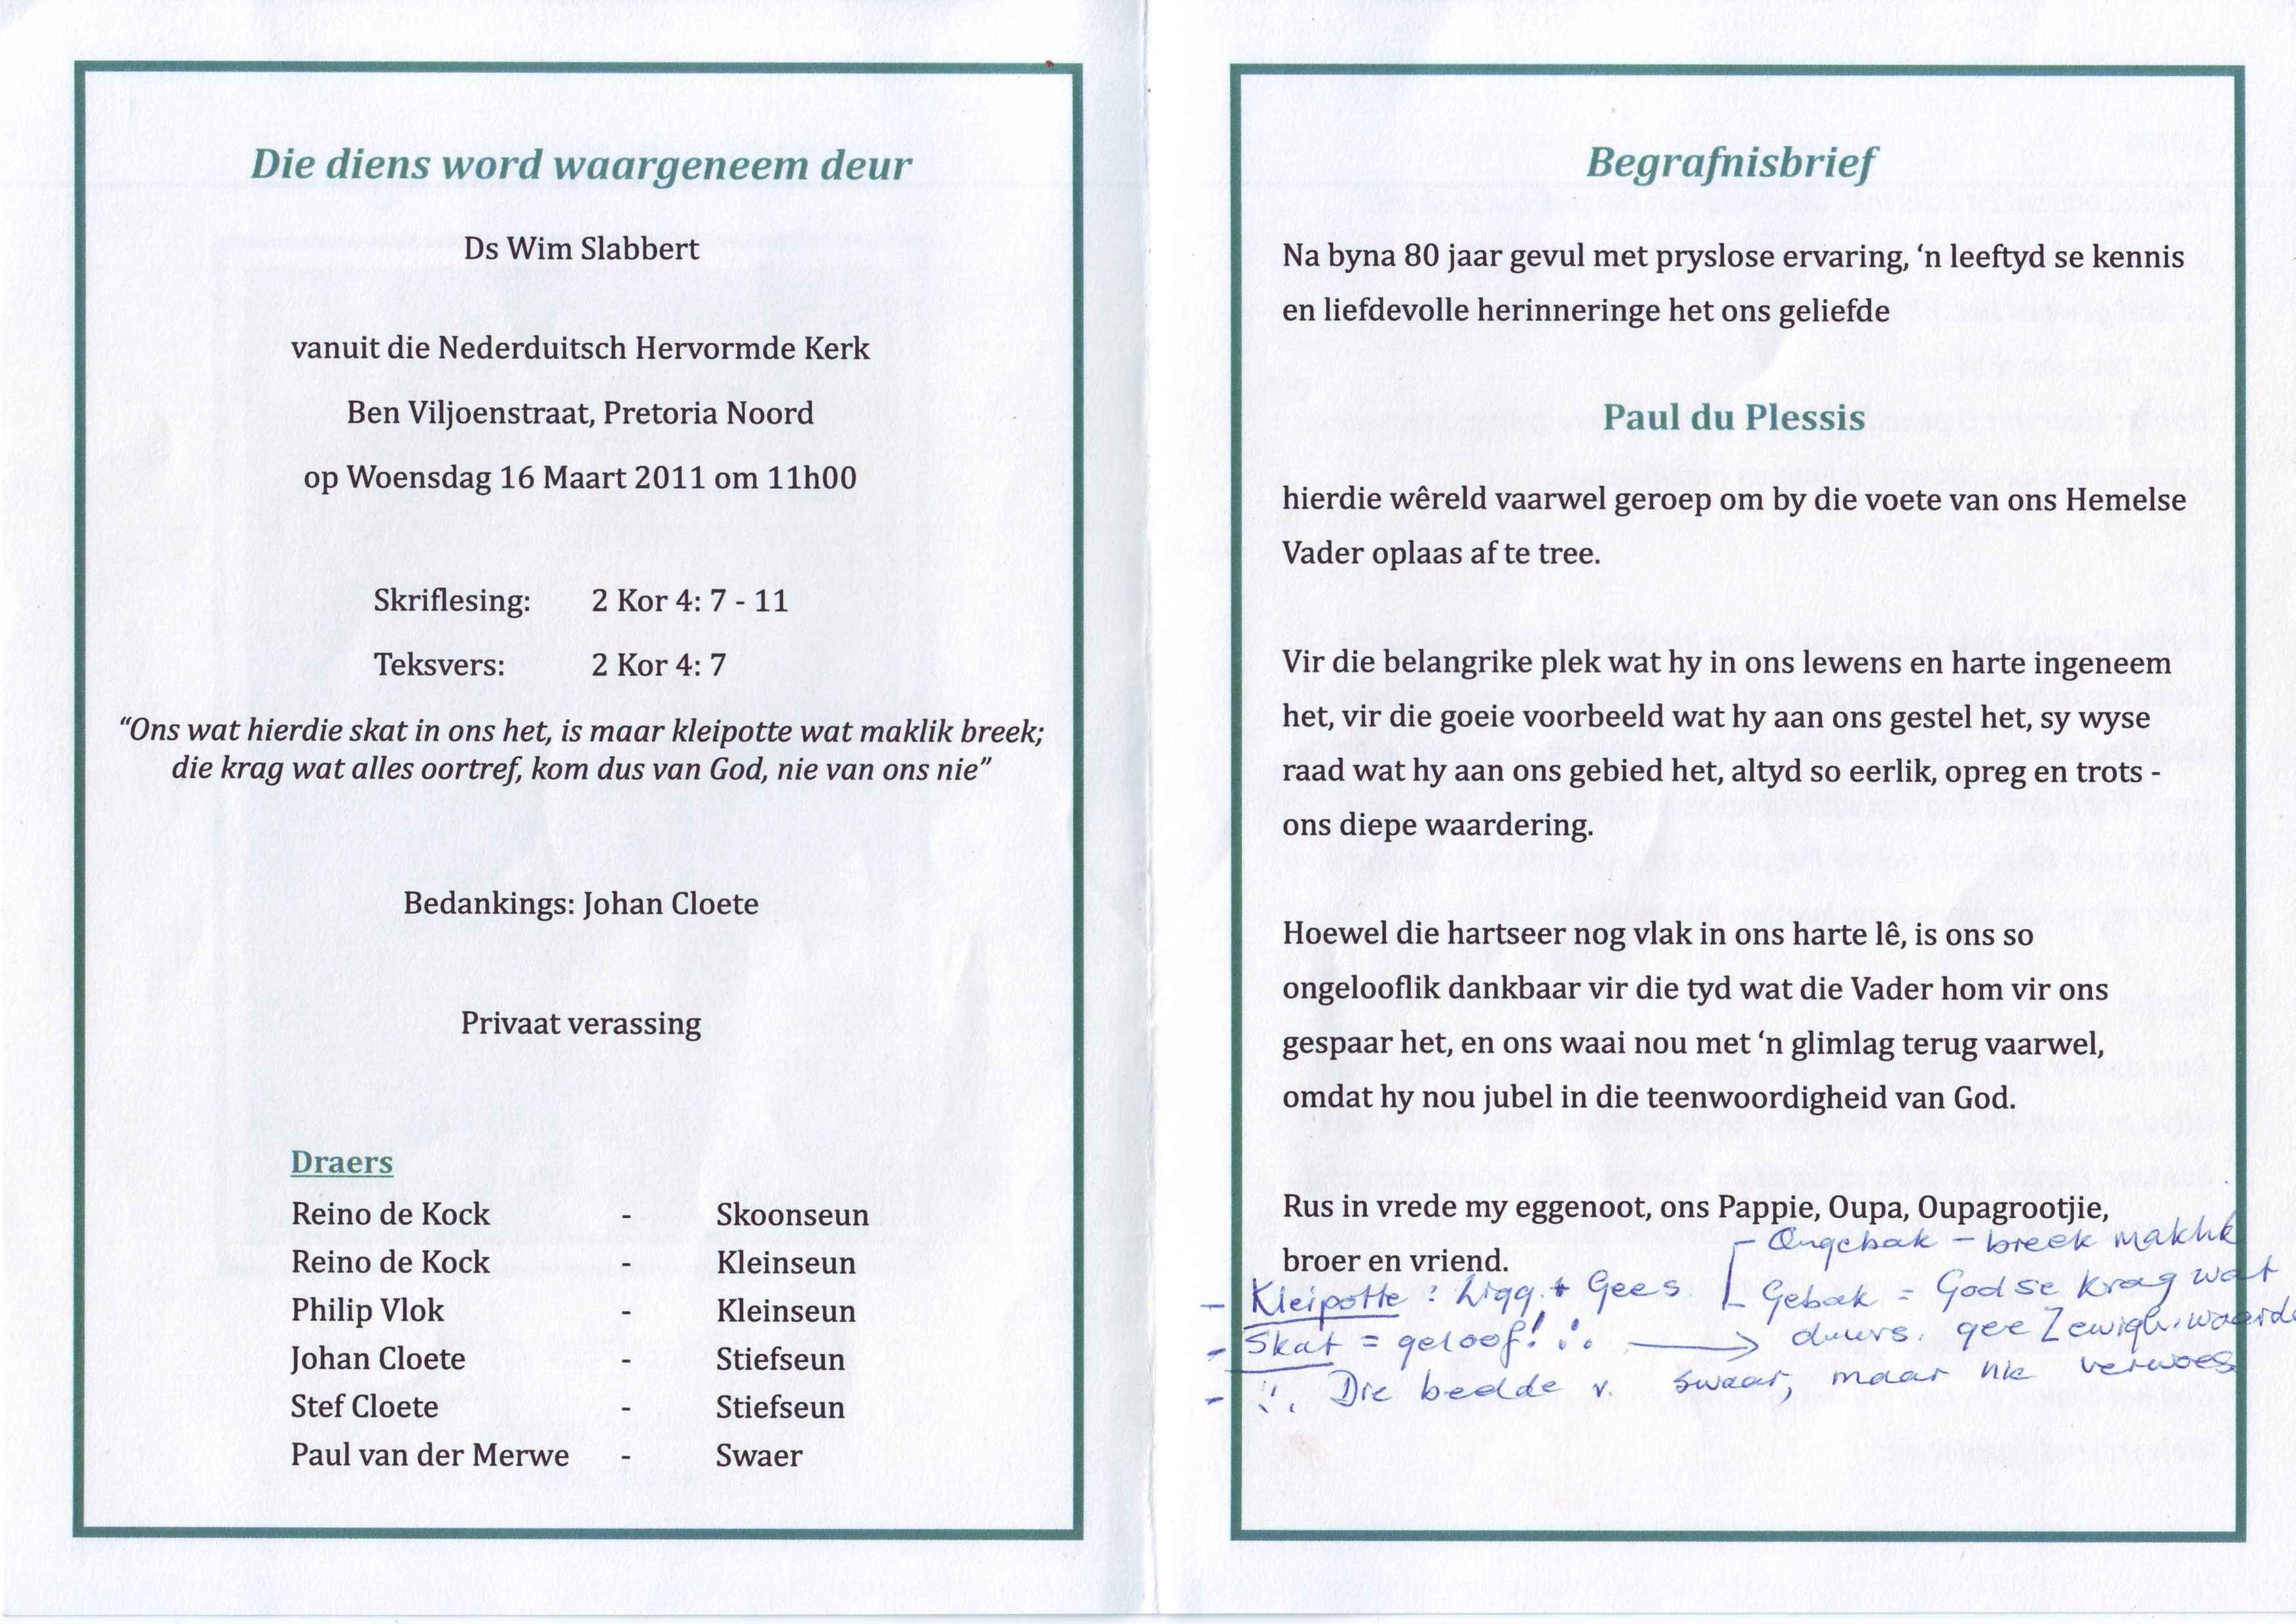 Die diens word waargeneem deur
Ds Wim Slabbert
vanuit die Nederduitsch Hervormde Kerk
Ben Viljoenstraat, Pretoria Noord
op Woensdag 16 Maart 2011 om 11h00
Skriflesing: 2 Kor 4: 7 - 11
Teksvers: 2 Kor 4: 7
“Ons wat hierdie skat in ons het, is maar kleipotte wat maklik breek;
die krag wat alles oortref, kom dus van God, nie van ons nie”
Bedankings: Johan Cloete
Privaat verassing
Draers
Reino de Kock - Skoonseun
Reino de Kock - Kleinseun
Philip Vlok - Kleinseun
Johan Cloete - Stiefseun
Stef Cloete - Stiefseun
Paul van der Merwe - Swaer
Begrafnisbrief
Na byna 80 jaar gevul met pryslose ervaring, ‘n leeftyd se kennis
en liefdevolle herinneringe het ons geliefde
Paul du Plessis
hierdie wêreld vaarwel geroep om by die voete van ons Hemelse
Vader oplaas af te tree.
Vir die belangrike plek wat hy in ons lewens en harte ingeneem
het, vir die goeie voorbeeld wat hy aan ons gestel het, sy wyse
raad wat hy aan ons gebied het, altyd so eerlik, opreg en trots -
ons diepe waardering.
Hoewel die hartseer nog vlak in ons harte lê, is ons so
ongelooflik dankbaar vir die tyd wat die Vader hom vir ons
gespaar het, en ons waai nou met ‘n glimlag terug vaarwel,
omdat hy nou jubel in die teenwoordigheid van God.
Rus in vrede my eggenoot, ons Pappie, Oupa, Oupagrootjie,
broer en vriend.
Ongebak - breek maklik
- Kleipotte : Ligg. + Gees
Gebak = God se krag wat
- Skat = geloof! ∴ → gee
- Die beelde v. swaar, maar nie